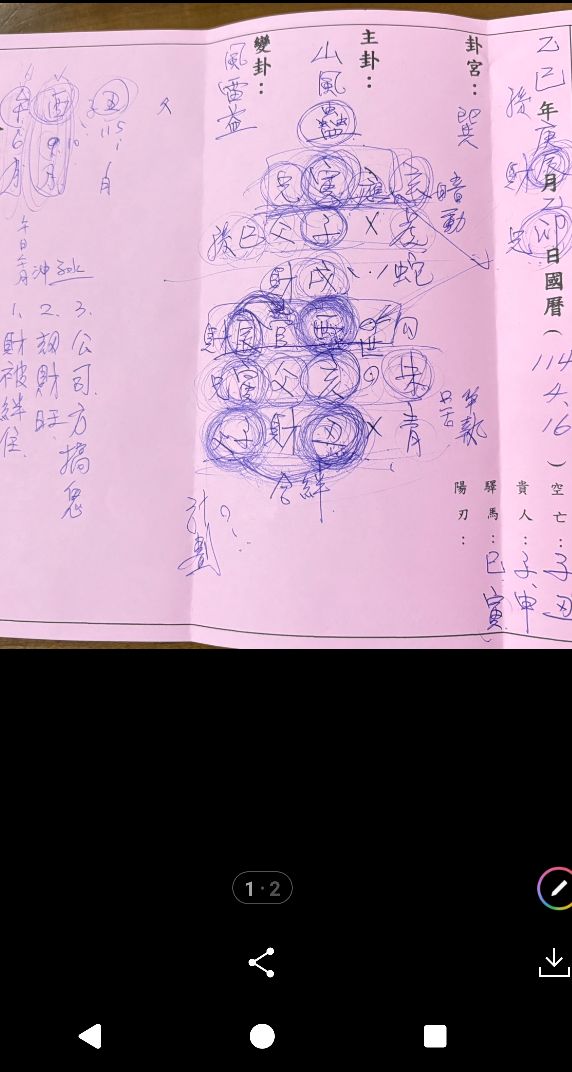 乙巳年庚辰月乙卯日國曆(114.4.16)空亡:子丑
孫
財
兄
貴人:子、申
驛馬:巳
陽刃:寅
卦宮:巽
主卦:山風蠱
變卦:風雷益
兄寅應
暗動
孫巳父子X虎
財戌、、蛇
財辰官酉世勾
兄寅父亥朱
父子財丑X青
合絆
計劃
丑
酉
115
1
月
9
月
10
6月
午日
沖
3.公司方搞鬼
2.劫財旺
1.財被絆住
1·2